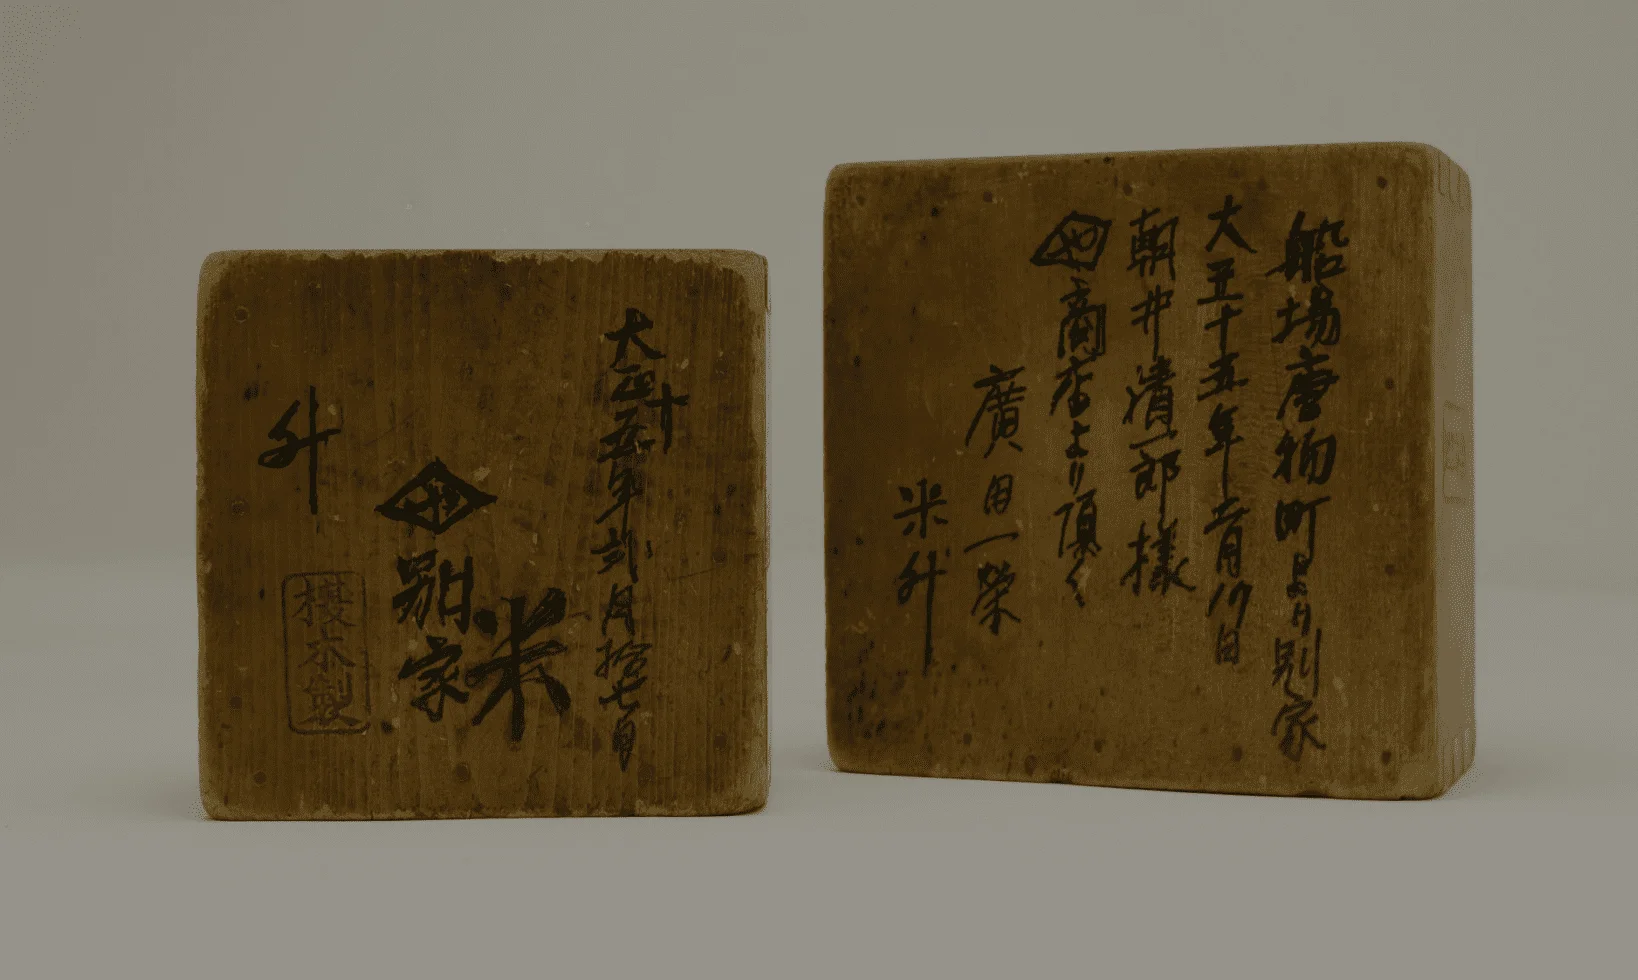 船場唐物町より別家
大正十五年二月17日
朝井清一郎様
商店より頂く
廣田一榮
米升
大正十五年弐月拾七日
米
別家
升